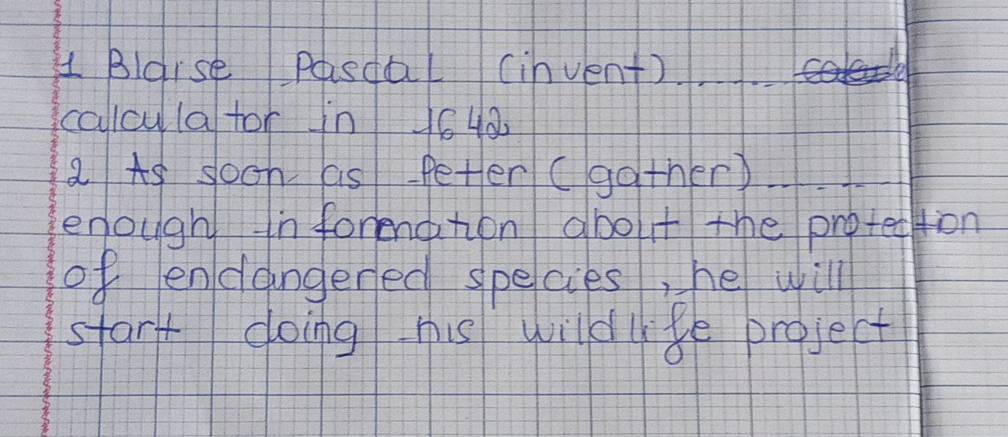 1 Blaise Pascal (invent)........
calculator in 1642
2 As soon as Peter (gather)........
enough information about the protection
of endangered species, he will
start doing his wildlife project